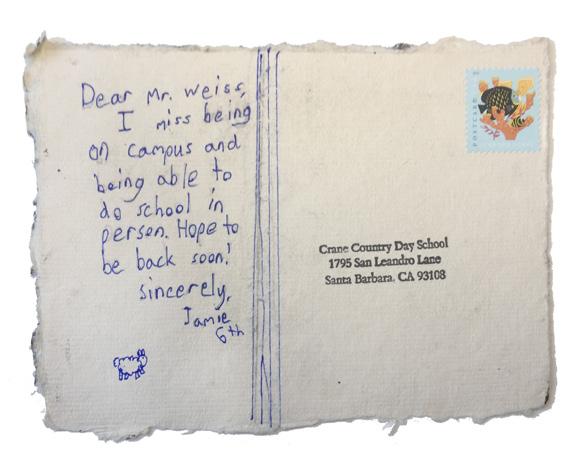 Dear Mr. Weiss,
I miss being
on campus and
being able to
do school in
person. Hope to
be back soon!
Sincerely,
Jamie
6th
POSTCARD
Crane Country Day School
1795 San Leandro Lane
Santa Barbara, CA 93108